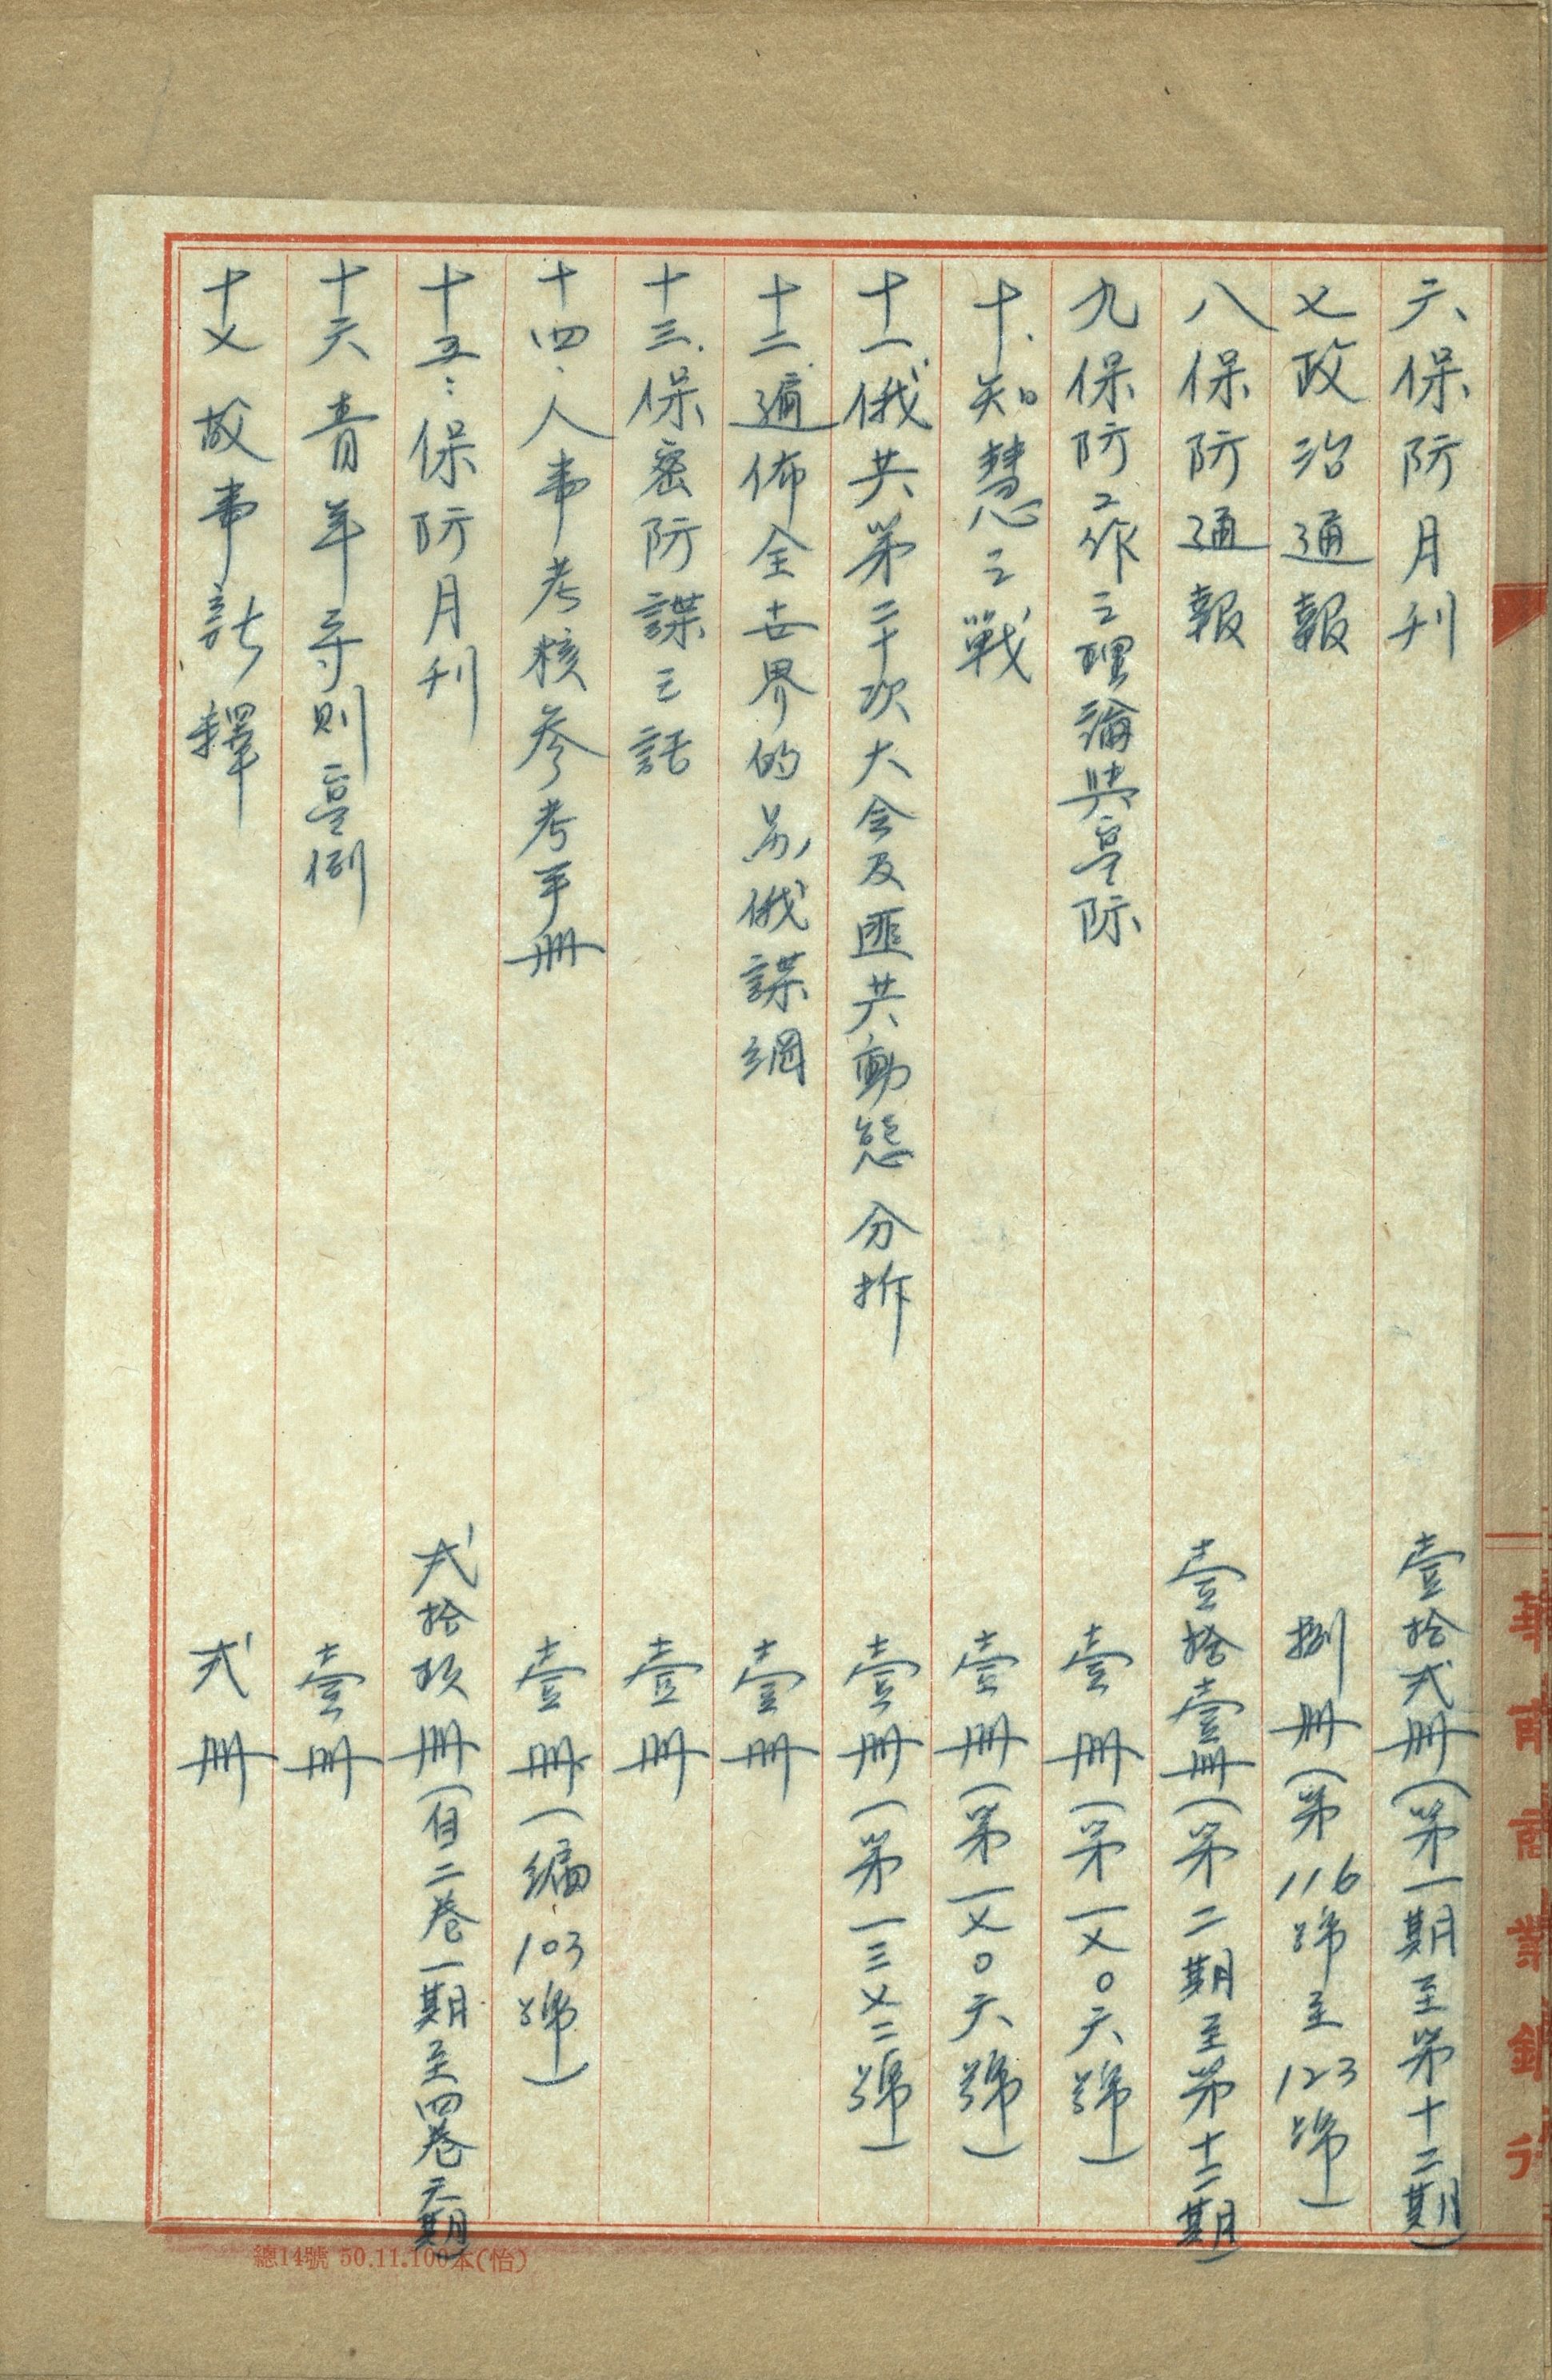 六、保防月刊 壹拾弍册(第一期至第十二期)
七政治通報 捌册(第116號至123號)
八保防通報 壹拾壹册(第二期至第十二期)
九保防工作之理論與实际 壹册(第一七〇六號)
十、知慧之戰 壹册(第一七〇六號)
十一、俄共第二十次大会及匪共動態分拆 壹册(第一三七二號)
十二遍佈全世界的苏俄諜網 壹册
十三.保密防諜三話 壹册
十四.人事考核参考手册 壹册(編103號)
十五:保防月刊 弍拾玖册(自二卷一期至四卷六期)
十六青年守則实例 壹册
十七故事新釋 弍册
華南商業銀行
總14號 50.11.100本(怡)